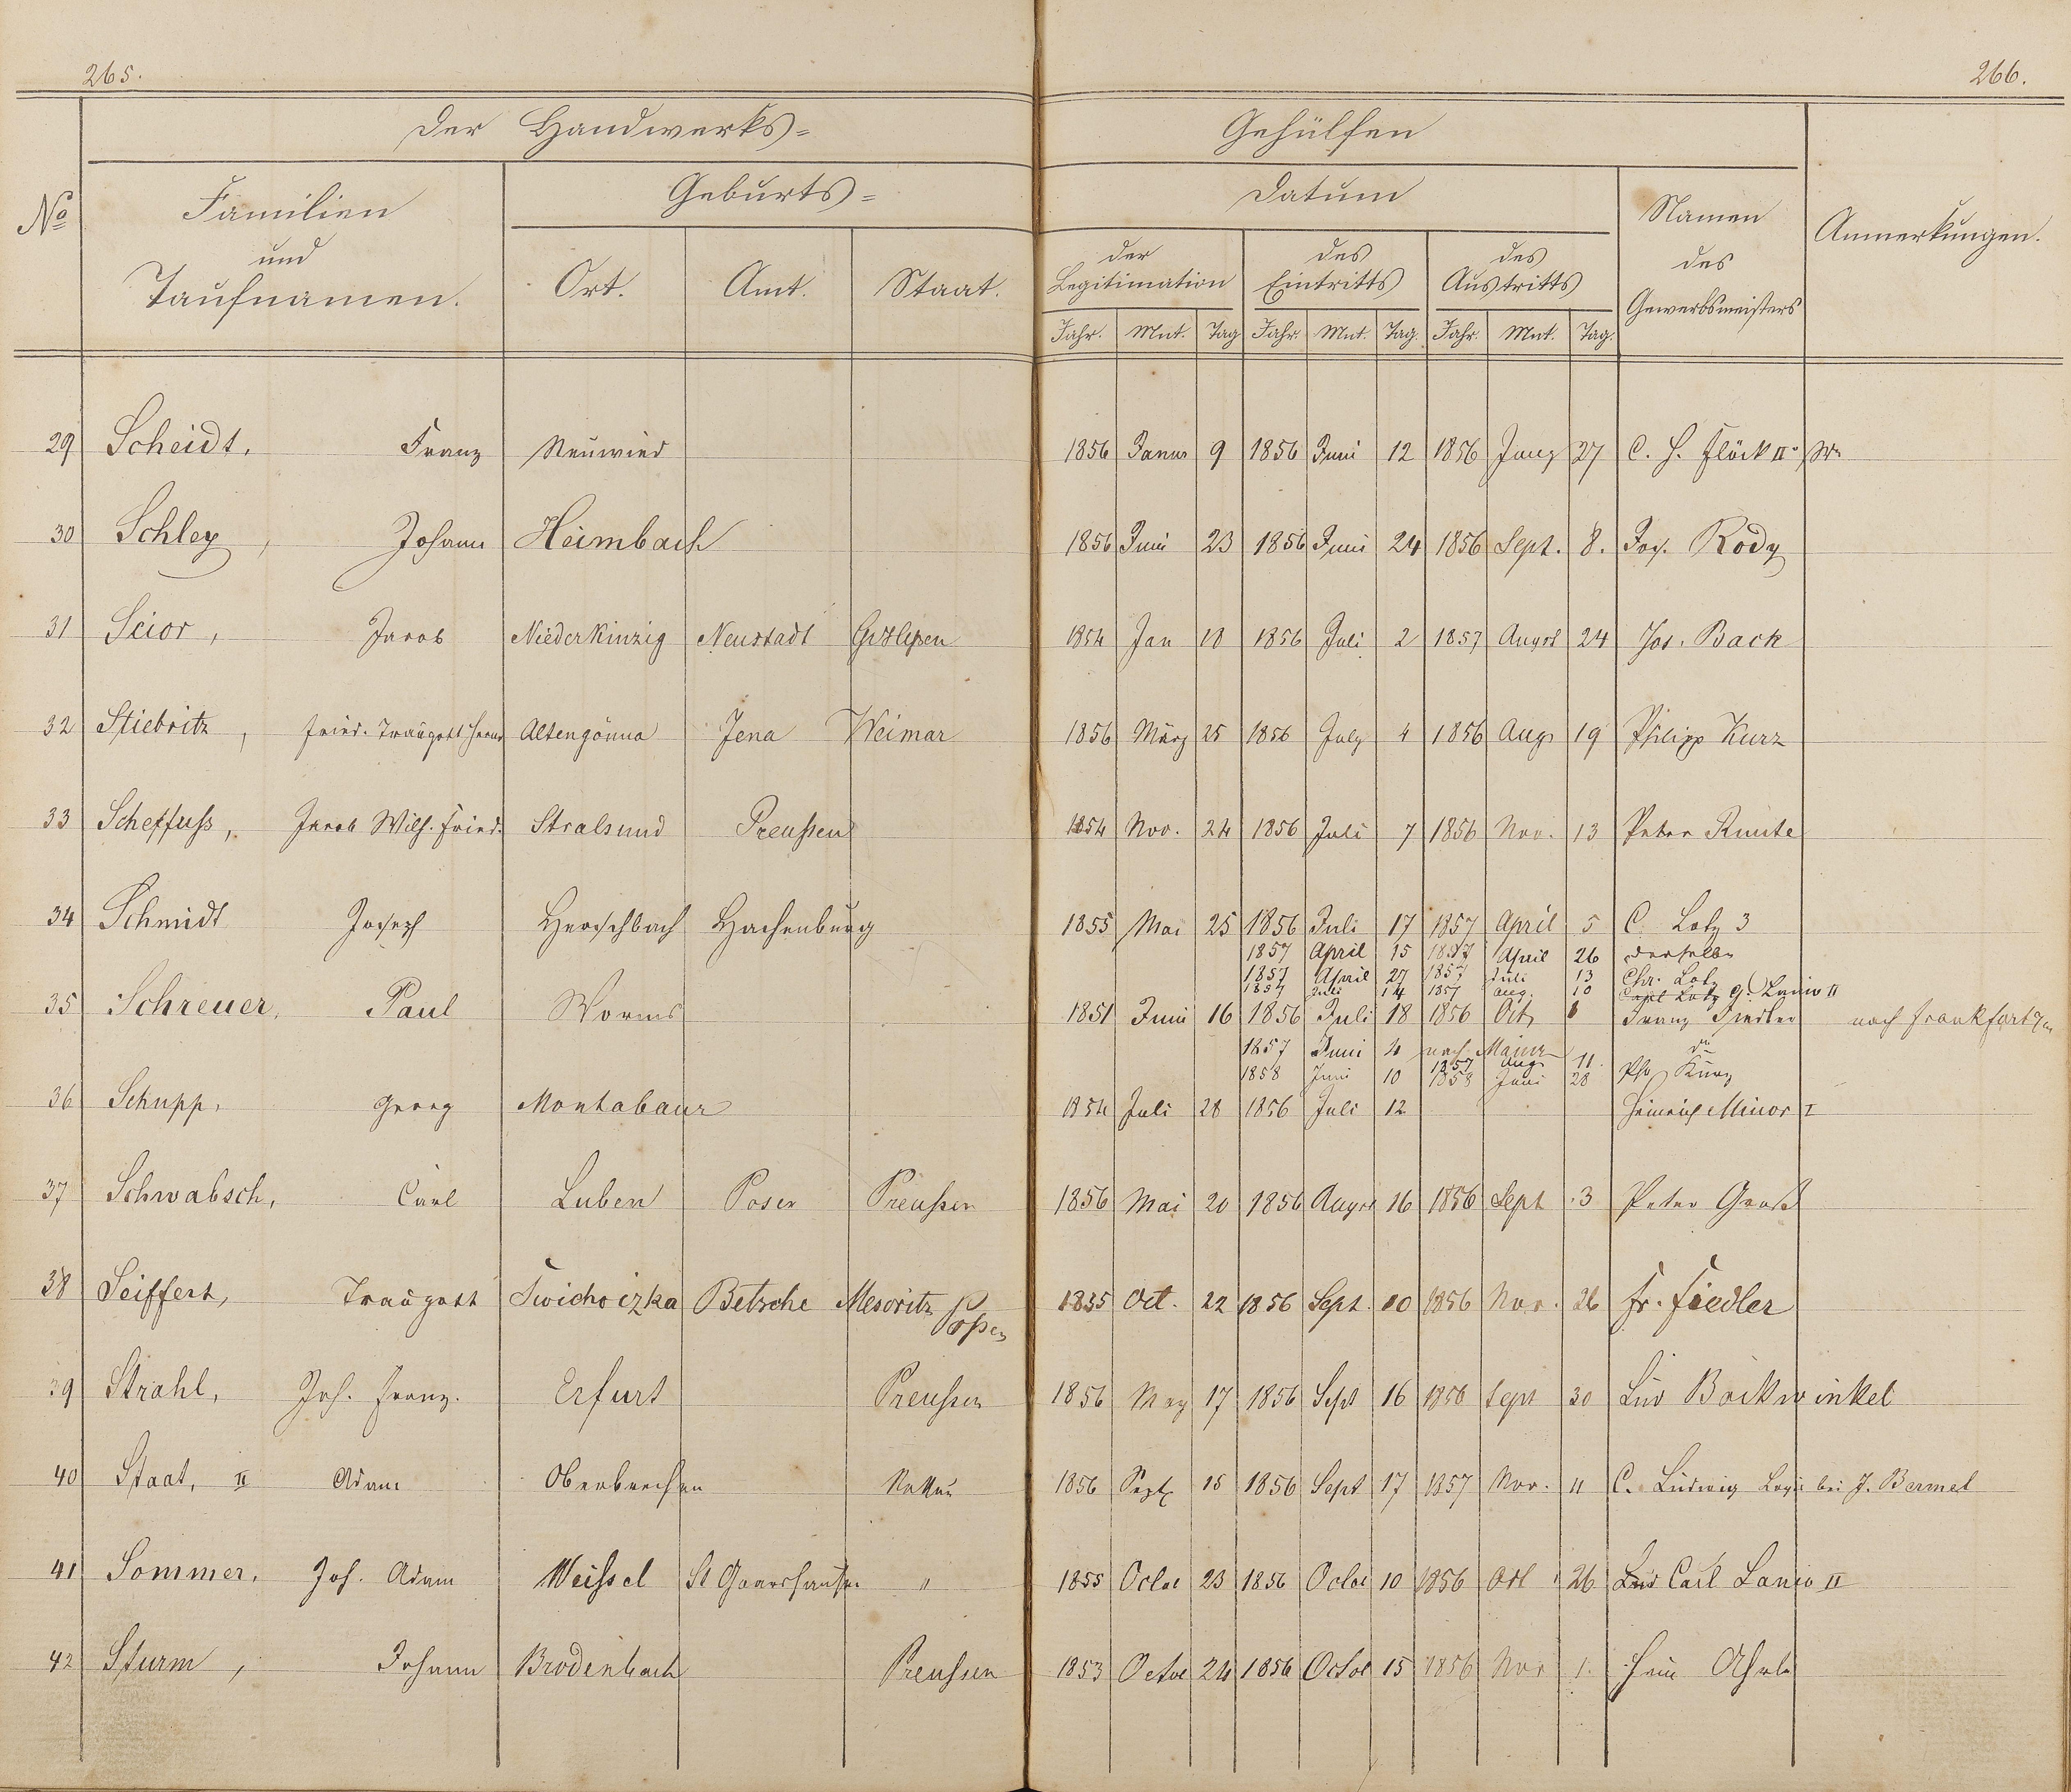 265.
266.
Der Handwerks=
Gehülfen
No
Familien
und
Taufnamen.
Geburts=
Ort.
Amt.
Staat.
Datum
der
Legitimation
des
Eintritts
des
Austritts
Jahr. Mnt. Tag Jahr. Mnt. Tag. Jahr. Mnt. Tag.
Namen
des
Gewerbsmeisters
Anmerkungen.
29 Scheidt, Franz Neuwied 1856 Januar 9 1856 Juni 12 1856 27 C. H. Flöck II
30 Schley, Johann Heimbach 1856 Juni 23 1856 Juni 24 1856 Sept. 8. Jos. Rody
31 Seior, Jacob Niederkinzig Neustadt 1854 Jan 18 1856 Juli 2 1857 August 24 Jos. Back
32 Stiebritz, Fried. Traugott Altengönna Jena Weimar 1856 März 25 1856 July 4 1856 Aug 19 Philipp Kurz
33 Scheffuss, Jacob Wilh. Fried. Stralsund Preußen 1854 Nov. 24 1856 Juli 7 1856 Nov. 13 Peter
34 Schmidt Joseph Herschbach Hachenburg 1855 Mai 25 1856 Juli 17 1857 April 5 C. Lotz 3
1857 April 15 1857 April 26 derselbe
1857 April 27 1857 Juli 13 Chr. Lotz
1857 Juli 14 1857 Aug. 10 Carl Lotz G. Lanio II
35 Schreuer, Paul Worms 1851 Juni 16 1856 Juli 18 1856 Oct 8 Franz Fiedler nach Frankfurt
1857 Juni 4 nach Mainz
1857 Aug 11.
1858 Juni 10 1858 Juni 28 Ph. Kurz
36 Schupp, Georg Montabaur 1854 Juli 28 1856 Juli 12 Heinrich Minor I
37 Schwabsch, Carl Luben Posen Preußen 1856 Mai 20 1856 August 16 1856 Sept 3 Peter Groß
38 Seiffert, Traugott Betsche Mesoritz 1855 Oct. 22 1856 Sept. 10 1856 Nov. 26 Fr. Fiedler
Poßen
39 Strahl, Joh. Franz. Erfurt Preußen 1856 May 17 1856 Sept 16 1856 Sept 30 Lud Böckwinkel
40 Staat, II Adam Oberbrechen Nassau 1856 Sept 15 1856 Sept 17 1857 Nov. 11 C. Ludwig bei J. Bermel
41 Sommer, Joh. Adam Weißel St Goarshausen " 1855 Octbr 23 1856 Octbr 10 1856 Oct 26 Carl Lanio II
42 Sturm, Johann Brodenbach Preußen 1853 Octbr 24 1856 Octbr 15 1856 Nov 1.